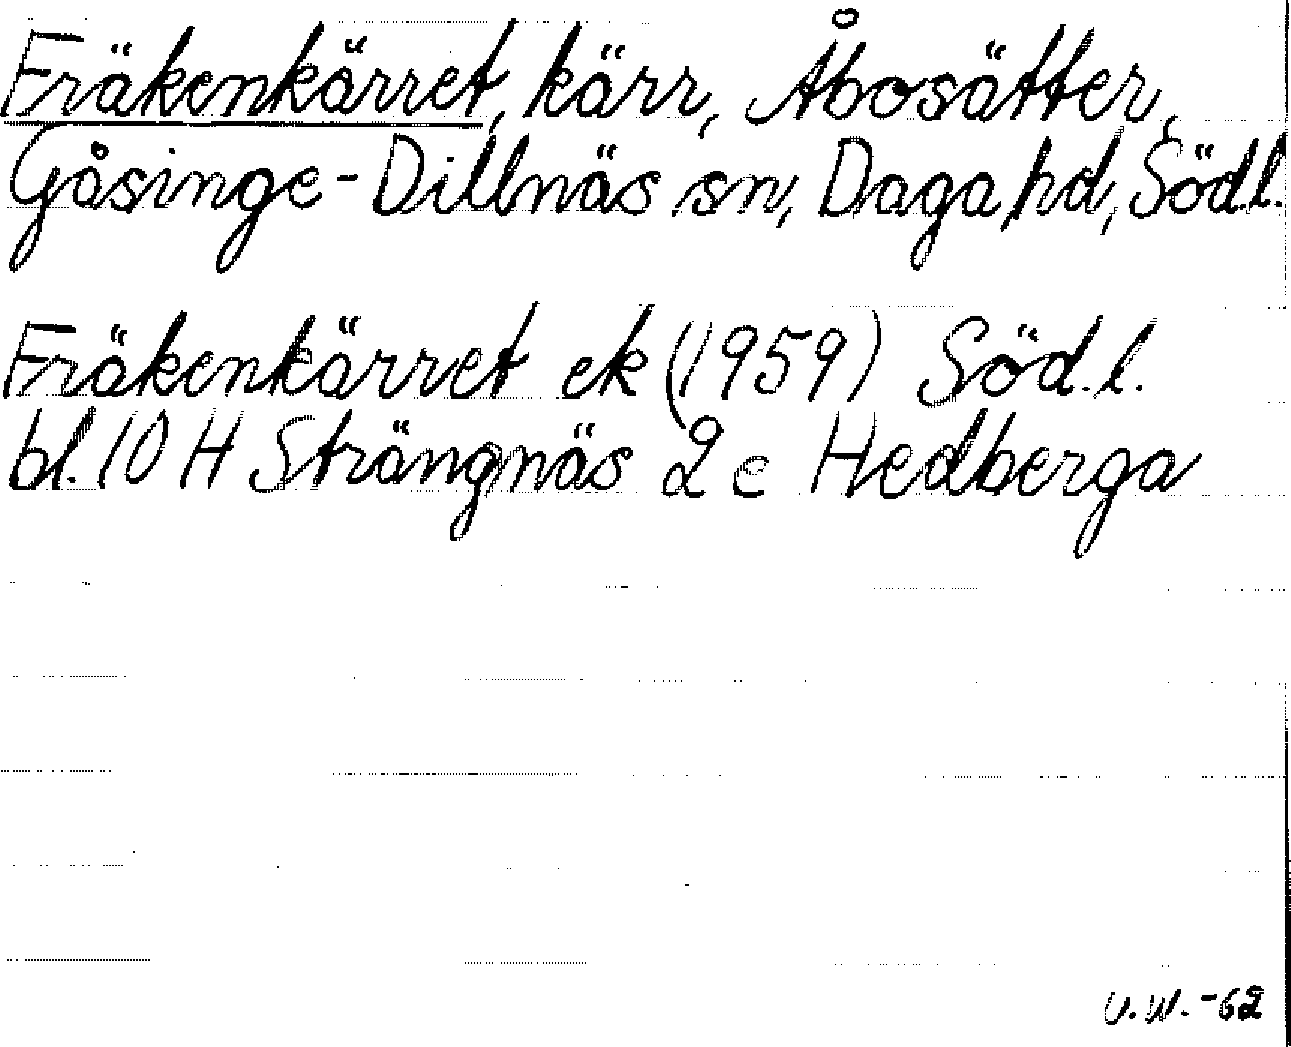 Fräkenkärret, kärr, Åbosätter,
Gåsinge-Dillnäs sn, Daga hd, Södl.
Fräkenkärret ek (1959) Söd.l.
bl. 10 H Strängnäs 2 c Hedberga
U.W.-62